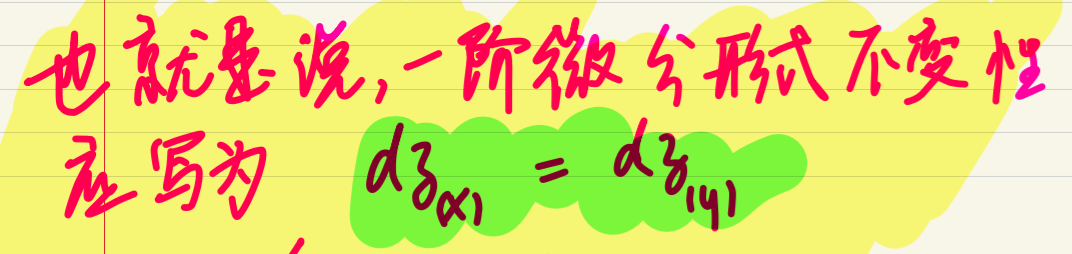 也就是说,一阶微分形式不变性
应写为 dz(x) = dz(y)